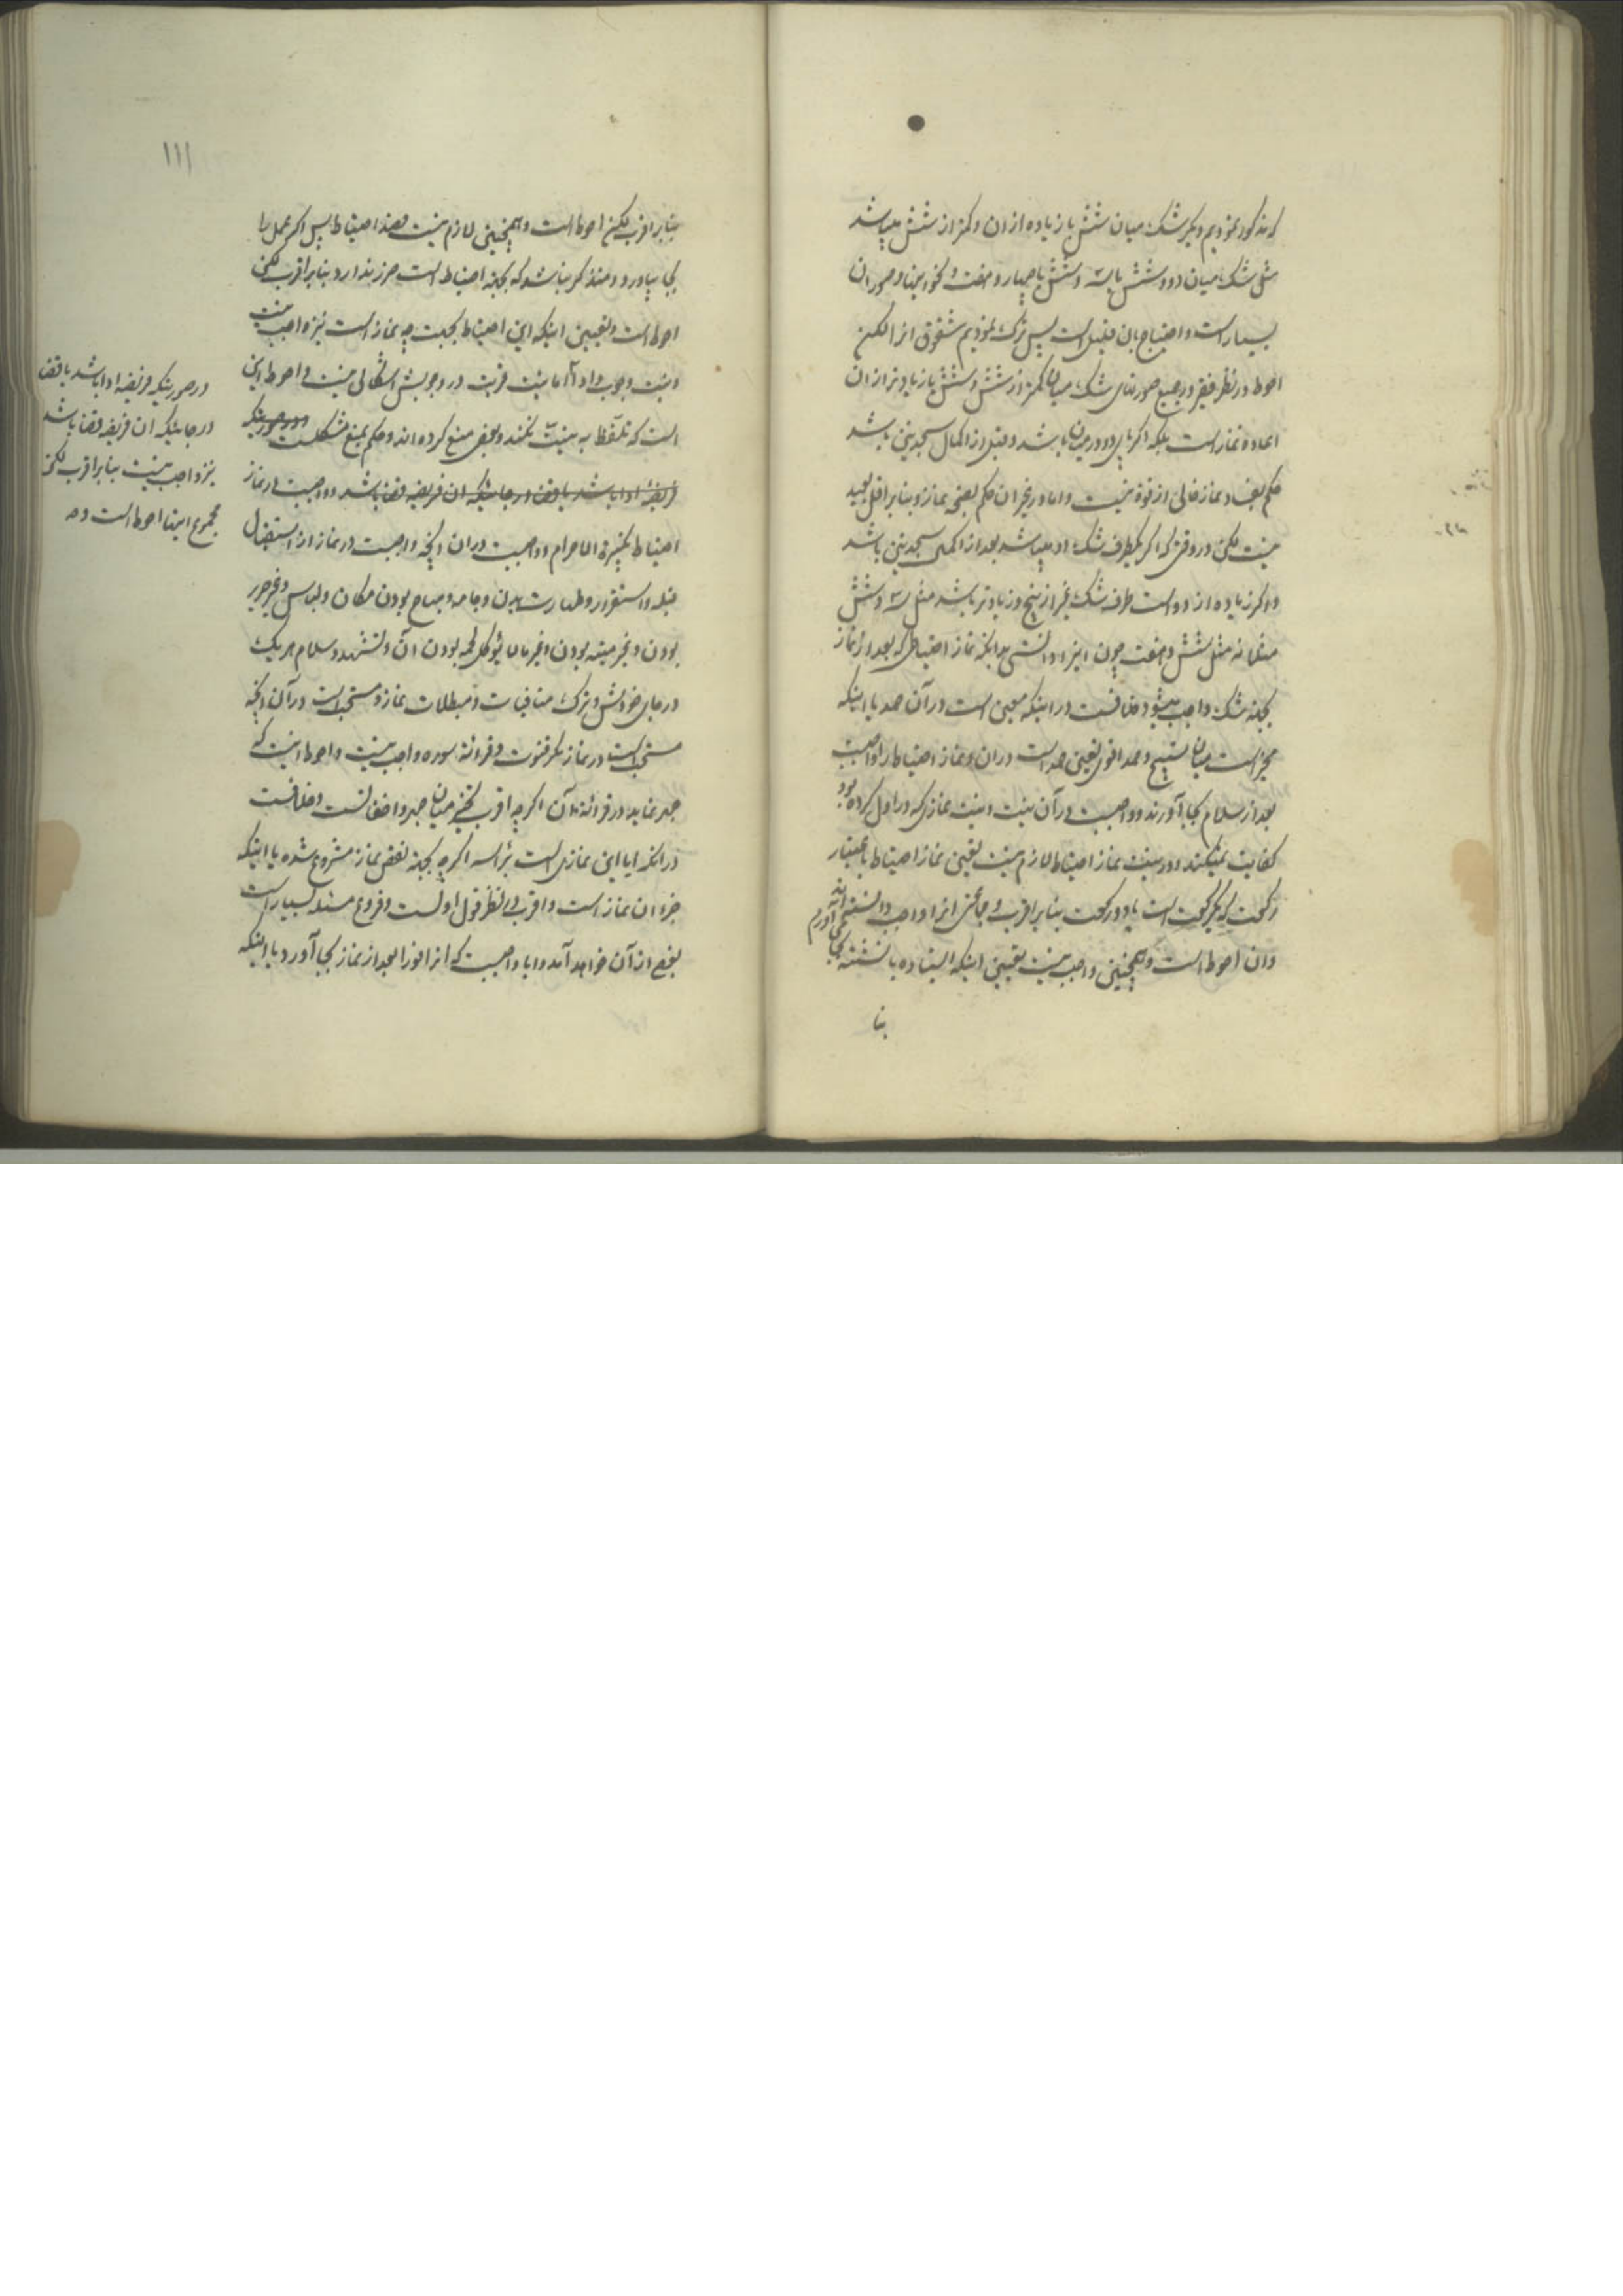 که مذکور نمودیم و دیگر شک میان شش یا زیاده از ان و کمتر از شش میباشد
مثل شک میان دو و شش یا سه و شش یا چهار و هفت و نحو اینها و صور ان
بسیار است و احتیاج بان قلیل است پس ترک نمودیم شقوق انرا لکن
احوط در نظر فقیر در جمیع صورتهای شک میان کمتر از شش و شش یا زیادتر از ان
اعاده نماز است بلکه اگر پای دو در میان باشد و قبل از اکمال سجدتین باشد
حکم بفساد نماز خالی از قوة نیست و اما در غیر ان حکم بصحة نماز و بنا بر اقل بعید
نیست لکن در وقتی که اگر یکطرف شک او میباشد بعد از اکمال سجدتین باشد
و اگر زیاده از دو است طرف شک غیر از پنج و زیادتر باشد مثل سه و شش
مثلا نه مثل شش و هفت چون اینرا دانستی بدانکه نماز احتیاطی که بعد از نماز
بجهة شک واجب میشود خلافست در اینکه معین است در آن حمد یا اینکه
مخیر است میان تسبیح و حمد اقوی تعین حمد است دران و نماز احتیاط را واجبست
بعد از سلام بجا آورند و واجبست در آن نیت و نیت نمازی که در اول کرده بود
کفایت نمیکند و در نیت نماز احتیاط لازم نیست تعیین نماز احتیاط باعتبار
رکعت که یکرکعت است یا دو رکعت بنا بر اقرب و جماعتی انرا واجب دانسته‌اند
وان احوط است و همچنین واجب نیست تعیین اینکه ایستاده یا نشسته بجا می‌آورم
بنا
۱۱۱
بنا بر اقرب لکن احوط است و همچنین لازم نیست قصد احتیاط پس اگر عمل را
بجا بیاورد و متذکر نباشد که بجهة احتیاط است ضرر ندارد بنا بر اقرب لکن
احوط است و تعیین اینکه این احتیاط بجهت چه نماز است نیز واجب نیست
و نیت وجوب و ادا اما نیت قربت در وجوبش اشکالی نیست و احوط این
است که تلفظ به نیت نکنند و بعضی منع کرده‌اند و حکم بمنع مشکلست و در صورتیکه
فریضه ادا باشد یا قضا در جائیکه ان فریضه قضا باشد و واجبست در نماز
احتیاط تکبیرة الاحرام و واجبست دران انچه واجبست در نماز از استقبال
قبله و استقرار و طهارت بدن و جامه و مباح بودن مکان و لباس و غیر حریر
بودن و غیر میته بودن و غیر ما لا یؤکل لحمه بودن آن و تشهد و سلام هر یک
در جای خودش و ترک منافیات و مبطلات نماز و مستحب است در آن انچه
مستحب است در نماز مگر قنوت و قرائة سوره واجب نیست و احوط اینست که
جهر ننماید در قرائة آن اگر چه اقرب تخییر میان جهر و اخفاتست و خلافست
در انکه ایا این نمازی است برأسه اگر چه بجهة نقص نماز مشروع شده یا اینکه
جزء ان نماز است و اقرب در نظر قول اولست و فروع مسئله بسیار است
بعضی از آن خواهد آمد و ایا واجبست که انرا فورا بعد از نماز بجا آورد یا اینکه
در صورتیکه فریضه ادا باشد یا قضا
در جائیکه ان فریضه قضا باشد
نیز واجب نیست بنا بر اقرب لکن
مجموع اینها احوط است